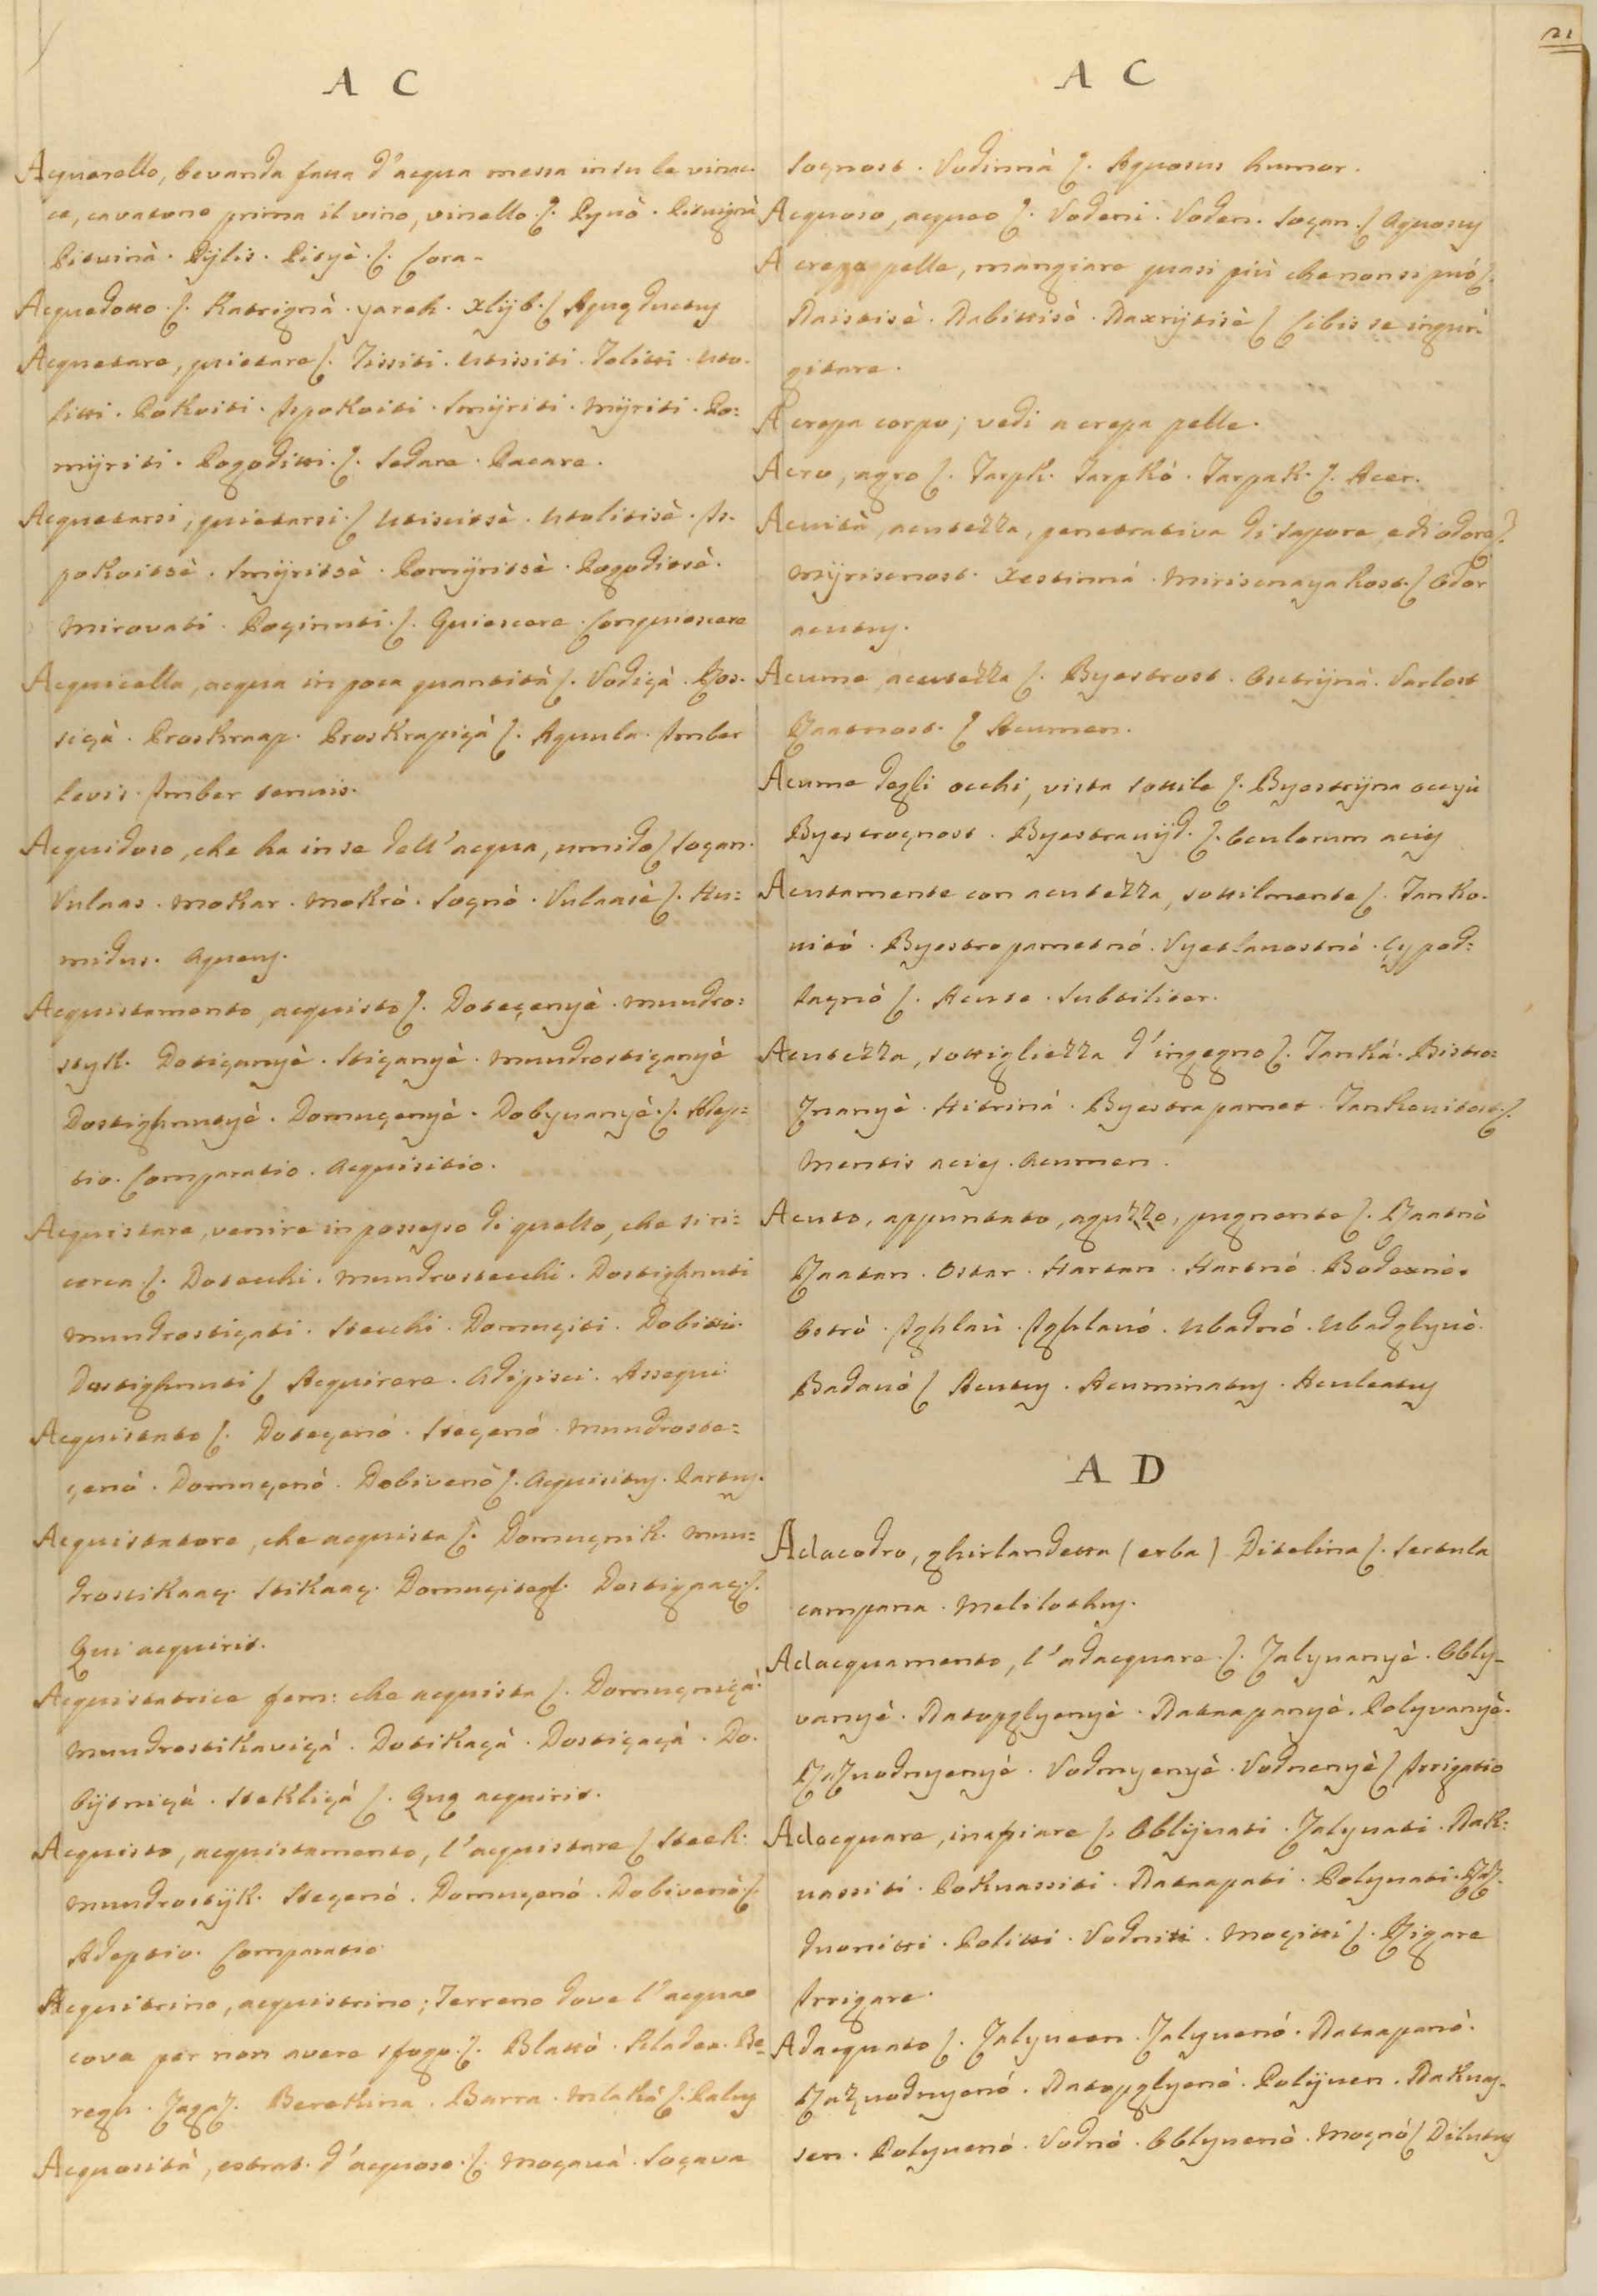 21
A C
Acquerello, bevanda fatta d'acqua messa in su le vinac-
ce, cavatone prima il vino, vinello. ſ. Pynò. Pitvignà
Pitvinà. Pÿlis. Pityè. ſ. Lora.
Acquedotto. ſ. Katrignà. yarek. xlijb. ſ Aquæductus
Acquetare, quietare ſ. Tissiti. Utissiti. Tolitti. Uto-
litti. Pokoiti. Ispokoiti. Smÿriti. Mÿriti. Po=
mÿriti. Pogoditti. ſ. Sedare. Pacare.
Acquetarsi, quietarsi. ſ Utiscitsè. Utolitisè. Is-
pokoitsè. Smÿritsè. Pomÿritsè. Pogoditsè.
Mirovati. Poçinuti. ſ. Quiescere. Conquiescere
Acquicella, acqua in poca quantità ſ. Vodiçà. Ros-
siçà. Proskraap. Proskrapiçà ſ. Aquula. Imber
levis. Imber tenuis.
Acquidoso, che ha in se dell'acqua, umido ſ Soçan.
Vulaas. Mokar. Mokrò. Soçnò. Vulaasè ſ. Hu=
midus. Aqueus.
Acquistamento, acquisto ſ. Doteçenyè. Mundro=
styk. Dotiçanyè. Stiçanyè. Mundrostiçanyè
Dostighnutyè. Domuçenyè. Dobyvanyè. ſ. Adep=
tio. Comparatio. Acquisitio.
Acquistare, venire in possesso di quello, che si ri=
cerca. ſ. Dotecchi. Mundrostecchi. Dostighnuti
Mundrostiçati. Stecchi. Domuçiti. Dobitti.
Dostighnuti ſ Acquirere. Adipisci. Assequi
Acquistato ſ. Doteçenò. Steçenò. Mundroste=
çenò. Domuçenò. Dobivenò ſ. Acquisitus. Partus.
Acquistatore, che acquista ſ. Domuçnik. Mun=
drostikaaç. Stikaaç. Domuçitegl. Dostigçaaç. ſ.
Qui acquirit.
Acquistatrice fem: che acquista ſ. Domuçniçà.
Mundrostikaviçà. Dotikaçà. Dostiçaçà. Do-
bÿtniçà. Stekliçà ſ. Quæ acquirit.
Acquisto, acquistamento, l'acquistare ſ Steck.
Mundrostÿk. Steçenò. Domuçenò. Dobivenò. ſ.
Adeptio. Comparatio
Acquitrino, acquistrino; Terreno dove l'acqua
cova per non avere sfogo. ſ. Blattò. Kladea. Be-
regh. Jagaz. Berekina. Barra. Mlakà ſ. Palus
Acquosità, estrat. d'acquoso. ſ. Moçavà. Soçava
A C
Soçnost. Vodinnà ſ. Aquosus humor.
Acquoso, acqueo ſ. Vodeni. Voden. Soçan. ſ Aquosus
A crepa pelle, mangiare quasi più che non si può ſ.
Naistisè. Nabittisè. Naxrÿtisè ſ Cibis se ingur-
gitare.
A crepa corpo; vedi a crepa pelle.
Acro, agro ſ. Tarpk. Tarpkò. Tarpak. ſ. Acer.
Acuità, acutezza, penetrativa di sapore, e di odore ſ.
Mÿriscnost. Xestinnà. Miriscnaya host. ſ Odor
acutus.
Acume, acutezza ſ. Byestrost. Osctrÿnà. Varlost
Zaatnost. ſ Acumen.
Acume degli occhi, vista sottile ſ. Byestrÿna occyù
Byestroçnost. Byestravijd. ſ. Oculorum acies
Acutamente con acutezza, sottilmente ſ. Tanko-
vitò. Byestropametnò. Vyetlanostnò. Çypod=
laçnò ſ. Acute. Subtiliter.
Acutezza, sottigliezza d'ingegno ſ. Tankà. Bistro=
znanyè. Hitrinà. Byestra pamet. Tankovitost ſ.
Mentis acies. Acumen.
Acuto, appuntato, aguzzo, pugnente ſ. Zaatnò
Zaatan. Ostar. Hartan. Hartnò. Bodexnò.
Ostrò. Ighlav. Ighlavò. Ubadnò. Ubadglyvò.
Badavò ſ Acutus. Acuminatus. Aculeatus
A D
Adacodro, ghirlandetta (erba) Ditelina ſ. Sertula
campana. Melilothus.
Adacquamento, l'adacquare. ſ. Zalyvanyè. Obly-
vanyè. Natopglyenyè. Nataapanyè. Polyvanyè.
Zazvodnyenyè. Vodnyenyè. Vodnenyè ſ Irrigatio
Adacquare, inafiare ſ. Oblÿvati. Zalyvati. Nak=
vassiti. Pokvassiti. Nataapati. Polyvati. Zaz-
dvonitti. Politti. Vodnitti. Moçitti ſ. Rigare
Irrigare.
Adacquato ſ. Zalyveen. Zalyvenò. Nataapanò.
Zazvodnyenò. Natopglyenò. Polÿven. Nakvas-
sen. Polyvenò. Vodnò. Oblyvenò. Moçnò ſ Dilutus